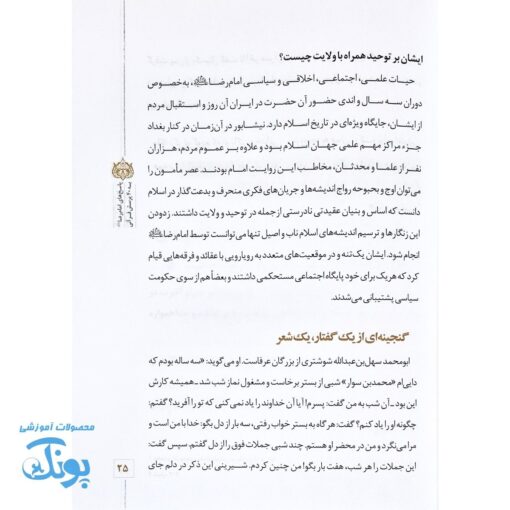 ایشان بر توحید همراه با ولایت چیست؟
حیات علمی، اجتماعی، اخلاقی و سیاسی امام رضا، به‌خصوص
دوران سه سال و اندی حضور آن حضرت در ایران آن روز و استقبال مردم
از ایشان، جایگاه ویژه‌ای در تاریخ اسلام دارد. نیشابور در آن‌زمان در کنار بغداد
جزء مراکز مهم علمی جهان اسلام بود و علاوه بر عموم مردم، هزاران
نفر از علما و محدثان، مخاطب این روایت امام بودند. عصر مأمون را
می‌توان اوج و بحبوحه رواج اندیشه‌ها و جریان‌های فکری منحرف و بدعت‌گذار در اسلام
دانست که اساس و بنیان عقیدتی نادرستی از جمله در توحید و ولایت داشتند. زدودن
این زنگارها و ترسیم اندیشه‌های اسلام ناب و اصیل تنها می‌توانست توسط امام رضا
انجام شود. ایشان یک‌تنه و در موقعیت‌های متعدد به رویارویی با عقائد و فرقه‌هایی قیام
کرد که هریک برای خود پایگاه اجتماعی مستحکمی داشتند و بعضاً هم از سوی حکومت
سیاسی پشتیبانی می‌شدند.
گنجینه‌ای از یک گفتار، یک شعر
ابومحمد سهل‌بن‌عبدالله شوشتری از بزرگان عرفاست. او می‌گوید: «سه ساله بودم که
دایی‌ام «محمدبن سوار» شبی از بستر برخاست و مشغول نماز شب شد ـ همیشه کارش
این بود ـ آن شب به من گفت: پسرم! آیا آن خداوند را یاد نمی کنی که تو را آفرید؟ گفتم:
چگونه او را یاد کنم؟ گفت: هر گاه به بستر خواب رفتی، سه بار از دل بگو: خدا با من است و
مرا می‌نگرد و من در محضر او هستم. چند شبی جملات فوق را از دل گفتم. سپس گفت:
این جملات را هر شب، هفت بار بگو! من چنین کردم. شیرینی این ذکر در دلم جای
۲۵
محصولات آموزشی
پونک